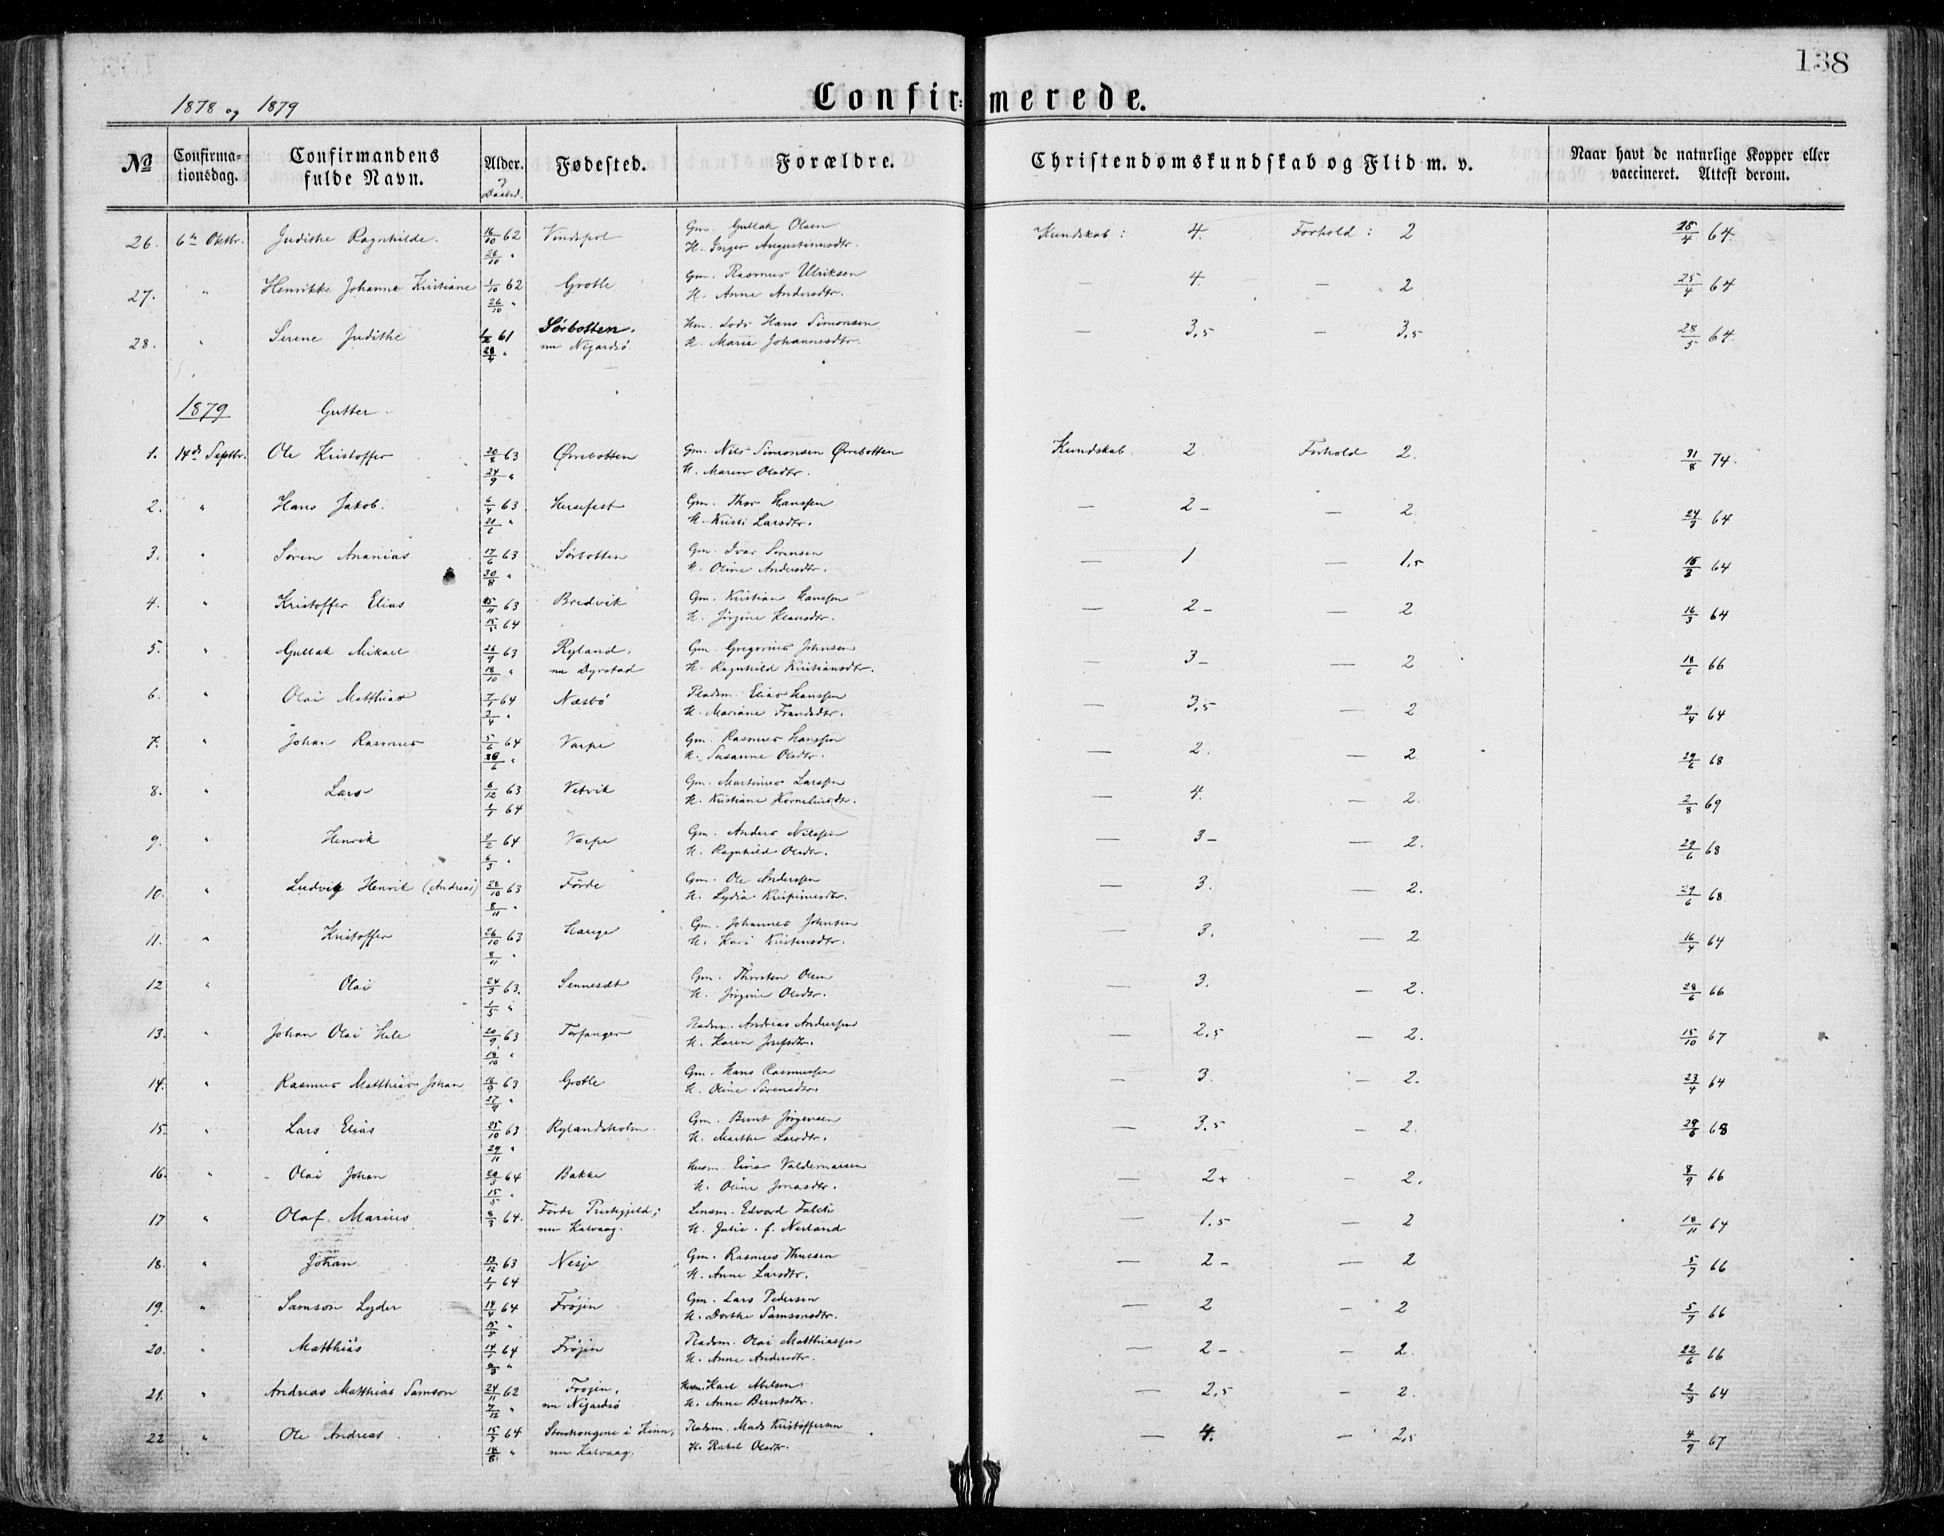 138
1878 og 1879
Confir=merede.
№ Confirma-tionsdag. Confirmandens fulde Navn. Alder. Fødested. Forældre. Christendomskundskab og Flid m. v. Naar havt de naturlige Kopper eller vaccineret. Attest derom.
26. 6te Oktbr. Judithe Ragnhilde. 16/10 62 Vindspol Gm. Gullak Olsen Kundskab: 4. Forhold: 2 25/4 64.
26/10 " H. Inger Augustinusdtr.
27. " Henrikke Johanne Kristiane 1/10 62 Grotle Gm. Rasmus Ulriksen — 4. — 2 25/4 64
26/10 " H. Anne Andersdtr.
28. " Serene Judithe 1/2 61 Sørbotten, Hm. Lods Hans Simonsen — 3,5 — 3,5 28/5 64.
28/4 " nu Nigardsö H. Marie Johannesdtr.
1879 Gutter.
1. 14de Septbr. Ole Kristoffer 20/8 63 Øvrebotten Gm. Nils Simonsen Øvrebotten Kundskab. 2 Forhold 2. 31/8 74.
24/9 " H. Maren Olsdtr.
2. " Hans Jakob. 6/4 63 Hersefest Gm. Thor Hanssen — 2 – — 2. 24/3 64
21/6 " H. Kristi Larsdtr.
3. " Søren Ananias 17/6 63 Sørbotten Gm. Ivar Sørensen — 1 — 1,5 16/3 64
30/8 " H. Oline Andersdtr.
4. " Kristoffer Elias 25/11 63 Bredvik Gm. Kristian Hanssen — 2 – — 2 16/3 64
15/5 64 H. Jörgine Klausdtr.
5. " Gullak Mikael 26/9 63 Ryland, Gm. Gregorius Johnsen — 3 – — 2 18/6 66
18/10 " nu Dyrstad H. Ragnhild Kristiansdtr.
6. " Olai Matthias 7/1 64 Næsbö Pladsm. Elias Hanssen — 3,5 — 2 9/4 64
3/4 " H. Mariane Frandsdtr.
7. " Johan Rasmus 5/6 64 Varpe Gm. Rasmus Hanssen — 2. — 2 29/6 68
26/6 " H. Susanne Olsdtr.
8. " Lars 6/12 63 Vetvik Gm. Martinus Larssen — 4. — 2. 2/8 69
1/1 64 H. Kristiane Korneliusdtr.
9. " Henrik 2/2 64 Varpe Gm. Anders Nilssen — 3 – — 2. 29/6 68
6/3 " H. Ragnhild Olsdtr.
10. " Ludvig Henrik (Andreas) 28/10 63 Förde Gm. Ole Anderssen — 3. — 2. 29/6 68
8/11 " H. Lydia Krispinusdtr.
11. " Kristoffer 26/10 63 Hauge Gm. Johannes Johnsen — 3. — 2 16/4 64
8/11 " H. Kari Kristensdtr.
12 " Olai 24/3 63. Sennesæt Gm. Thorsten Olsen — 3. — 2. 28/6 66
1/5 " H. Jörgine Olsdtr.
13. " Johan Olai Hele 20/9 63 Torfanger Pladsm. Andreas Anderssen — 2,5 — 2. 15/10 67
18/10 " H. Karen Josefsdtr.
14. " Rasmus Matthias Johan 16/9 63 Grotle Gm. Hans Rasmussen — 3. — 2. 23/4 64
27/9 " H. Oline Sørensdtr.
15. " Lars Elias 25/10 63 Rylandsholm. Gm. Bernt Jörgensen — 3,5 — 2. 29/6 68
29/11 " H. Marthe Larsdtr.
16. " Olai Johan 20/3 64 Bakke Husm. Einar Valdemarsen — 2+ – 2. 8/9 66
15/5 " H. Oline Jonasdtr.
17 " Olaf Marius 8/3 64. Förde Prestegjeld; Lensm. Edvard Falck — 1,5 — 2 18/11 64
nu Kalvaag. H. Julie f. Nerland
18. " Johan 13/12 63 Nesje Gm. Rasmus Thuesen — 2 – — 2 5/7 66
1/1 64 H. Anne Larsdtr.
19. " Samson Lyder 14/4 64 Fröjen Gm. Lars Pedersen — 2 — 2 5/7 66
15/5 " H. Dorthe Samsonsdtr.
20. " Matthias 14/1 64 Fröjen Pladsm. Olai Matthiassen — 2 – — 2. 22/6 66
6/3 " H. Anne Andersdtr.
21. " Andreas Matthias Samson 24/11 62 Fröjen, Husm. Karl Abelsen — 2,5 — 2. 2/3 64
7/12 " nu Nigardsö H. Anne Berntsdtr.
22 " Ole Andreas 15/3 64 i Kinn, Pladsm. Mads Kristoffersen — 4. — 2,5 4/9 67
14/8 " nu Kalvaag. H. Rakel Olsdtr.